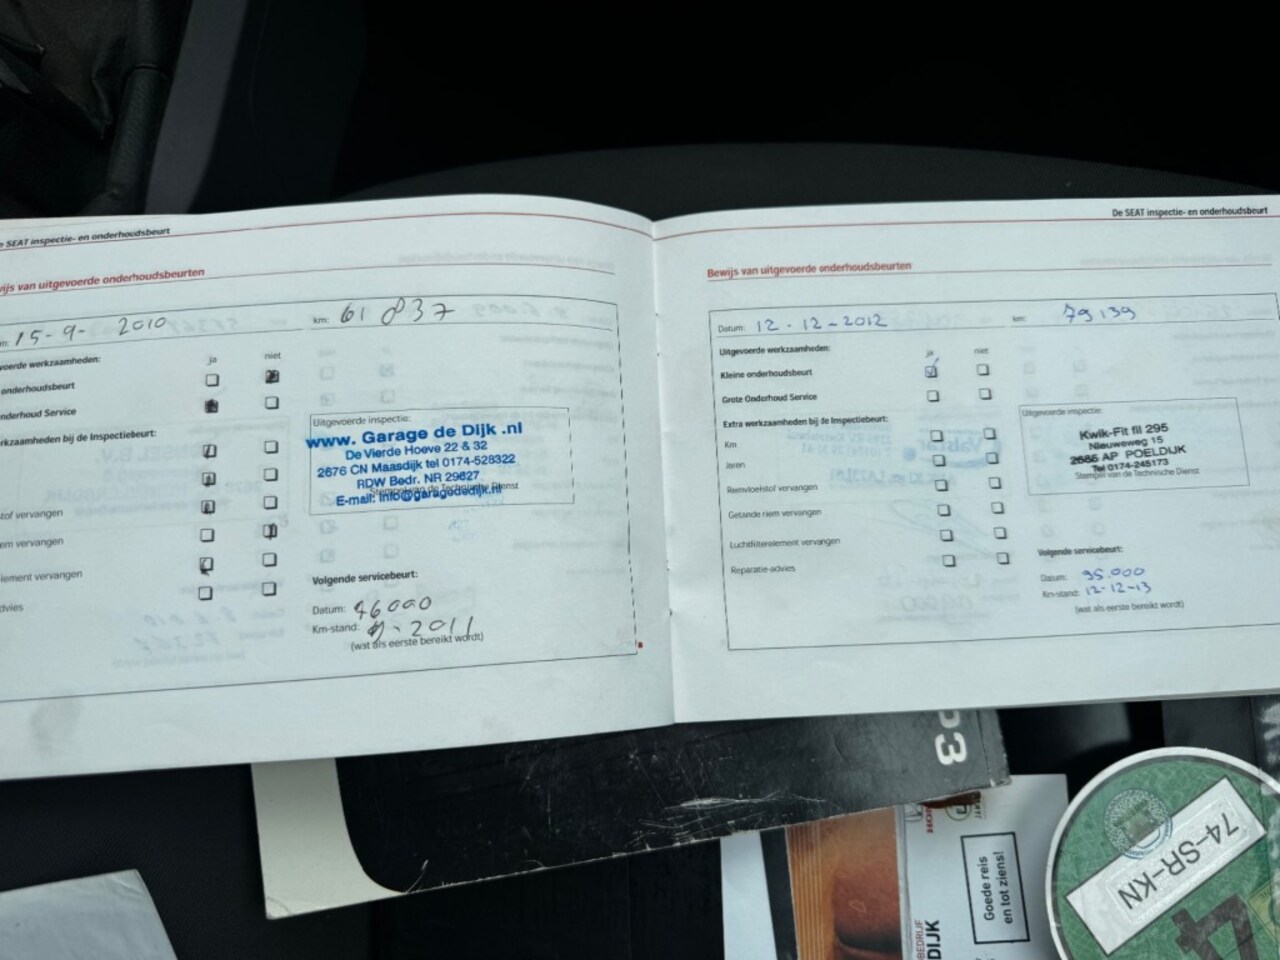 De SEAT inspectie- en onderhoudsbeurt
Bewijs van uitgevoerde onderhoudsbeurten
15-9-2010
km: 61 837
voerde werkzaamheden:
ja niet
onderhoudsbeurt
nderhoud Service
rkzaamheden bij de Inspectiebeurt:
stof vervangen
em vervangen
lement vervangen
dvies
Uitgevoerde inspectie:
www. Garage de Dijk .nl
De Vierde Hoeve 22 & 32
2676 CN Maasdijk tel 0174-528322
RDW Bedr. NR 29627
Stempel van de Technische Dienst
E-mail: info@garagededijk.nl
Volgende servicebeurt:
Datum: 76000
Km-stand: 9-2011
(wat als eerste bereikt wordt)
8
De SEAT inspectie- en onderhoudsbeurt
Bewijs van uitgevoerde onderhoudsbeurten
Datum: 12-12-2012
km: 79139
Uitgevoerde werkzaamheden:
ja niet
Kleine onderhoudbeurt
Grote Onderhoud Service
Extra werkzaamheden bij de Inspectiebeurt:
Km
Jaren
Remvloeistof vervangen
Getande riem vervangen
Luchtfilterelement vervangen
Reparatie-advies
Uitgevoerde inspectie:
Kwik-Fit fil 295
Nieuweweg 15
2685 AP POELDIJK
Tel 0174-245173
Stempel van de Technische Dienst
Volgende servicebeurt:
Datum: 95.000
Km-stand: 12-12-13
(wat als eerste bereikt wordt)
Goede reis
en tot ziens!
BEDRIJF
DIJK
74-SR-KN
4